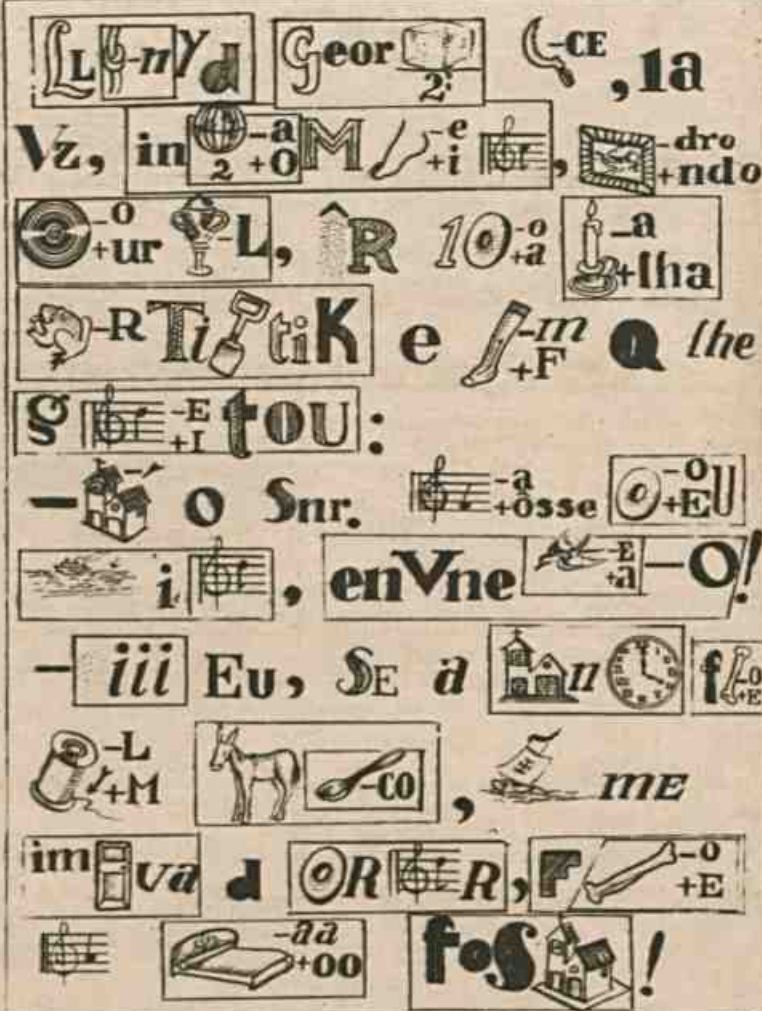 LL -n Y d Geor 2º -CE , 1a
Vz, in 2 -a +O M -e +i , -dro +ndo
-o +ur -L, ^R 10 -o +a -a +lha
-R Ti tiK e -m +F Q lhe
g -E +I tou:
- o Snr. -a +ôsse -o +EU
i , enVne -E +a -O!
- iii Eu, SE a n f -o +E
-L +M -CO , ME
im va d OR R, r -o +E
-aa +oo foS !